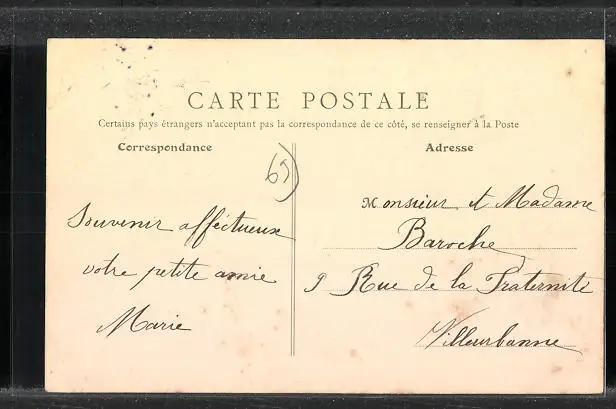 CARTE POSTALE
Certains pays étrangers n'acceptant pas la correspondance de ce côté, se renseigner à la Poste
Correspondance
Adresse
69)
Souvenir afféctueux
votre petite amie
Marie
Monsieur et Madame
Baroche
9 Rue de la Fraternité
Villeurbanne